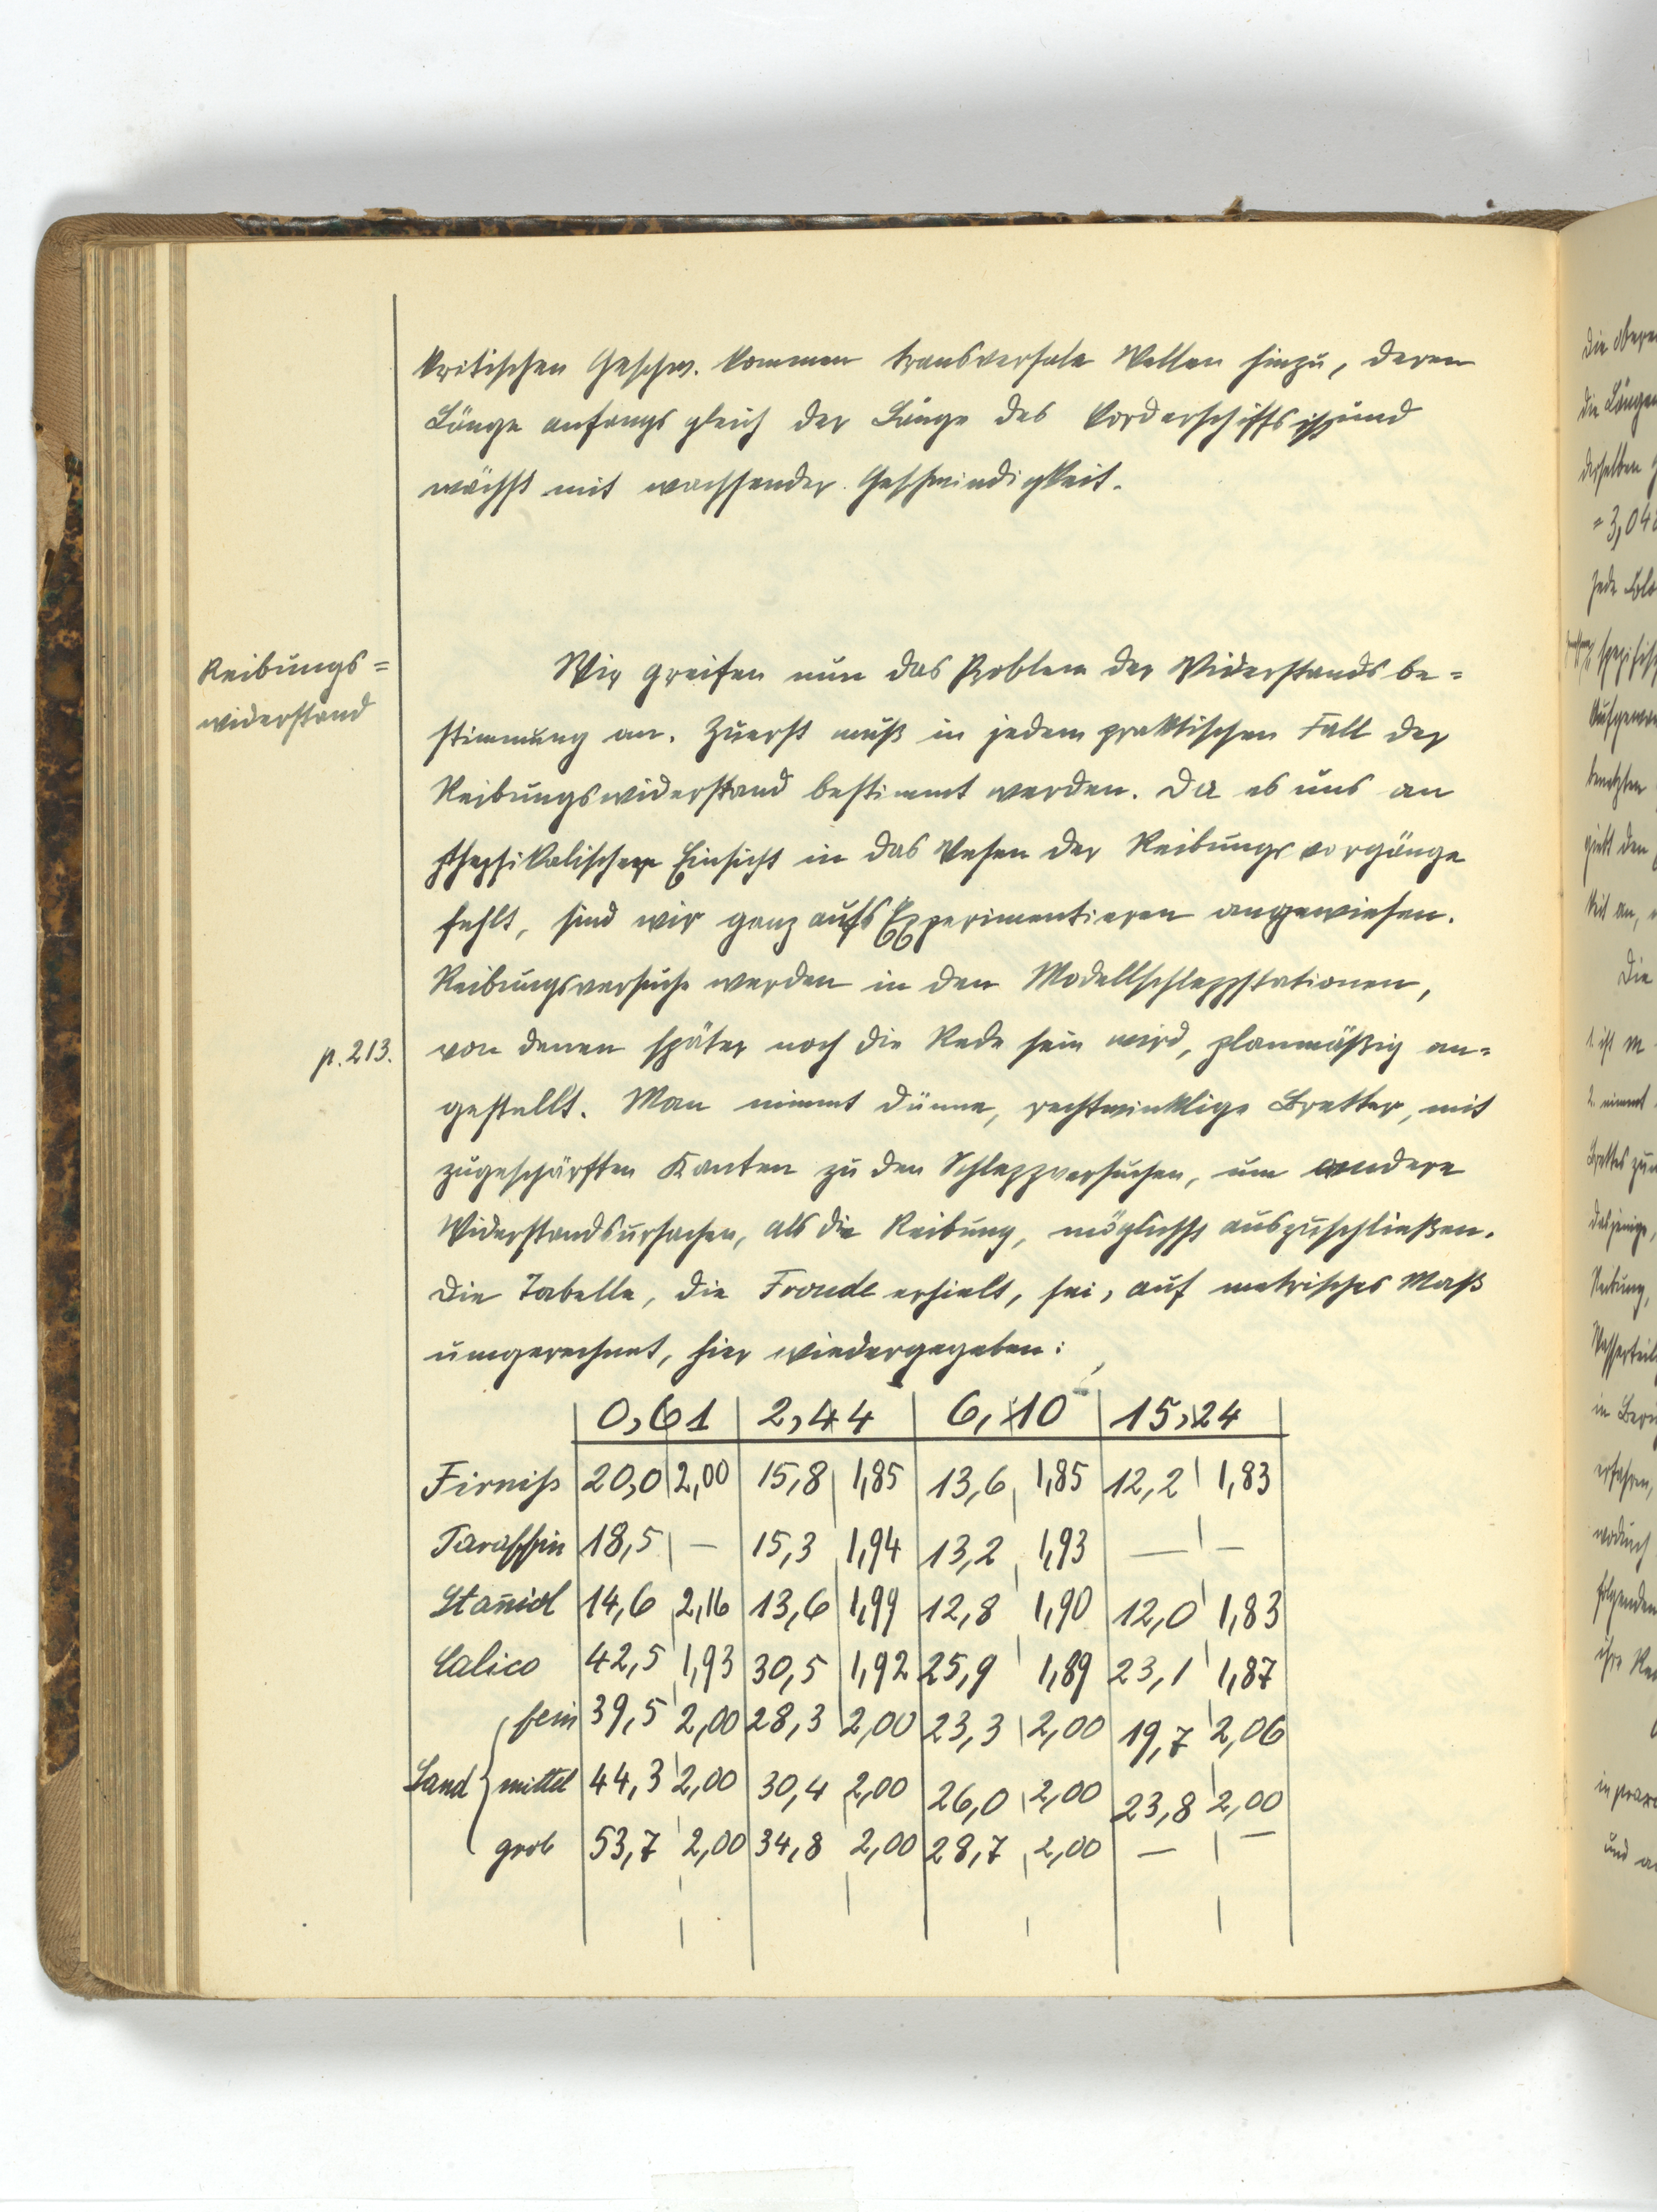 kritischen Geschw. kommen transversale Wellen hinzu, deren
Länge anfangs gleich der Länge des Vorderschiffs ist und
wächst mit wachsender Geschwindigkeit.
Reibungs=
widerstand
Wir greifen nun das Problem der Widerstandsbe=
stimmung an. Zuerst muß in jedem praktischen Fall der
Reibungswiderstand bestimmt werden. Da es uns an
physikalischer Einsicht in das Wesen der Reibungsvorgänge
fehlt, sind wir ganz aufs Experimentieren angewiesen.
Reibungsversuche werden in den Modellschleppstationen,
p. 213.
von denen später noch die Rede sein wird, planmäßig an=
gestellt. Man nimmt dünne, rechtwinklige Bretter, mit
zugeschärften Kanten zu den Schleppversuchen, um andere
Widerstandsursachen, als die Reibung, möglichst auszuschließen.
Die Tabelle, die Froude erhielt, sei, auf metrisches Maß
umgerechnet, hier wiedergegeben:
0,61 2,44 6,10 15,24
Firniß 20,0 2,00 15,8 1,85 13,6 1,85 12,2 1,83
Paraffin 18,5 — 15,3 1,94 13,2 1,93 — —
Stan̄iol 14,6 2,16 13,6 1,99 12,8 1,90 12,0 1,83
Calico 42,5 1,93 30,5 1,92 25,9 1,89 23,1 1,87
fein 39,5 2,00 28,3 2,00 23,3 2,00 19,7 2,06
Sand { mittel 44,3 2,00 30,4 2,00 26,0 2,00 23,8 2,00
grob 53,7 2,00 34,8 2,00 28,7 2,00 — —